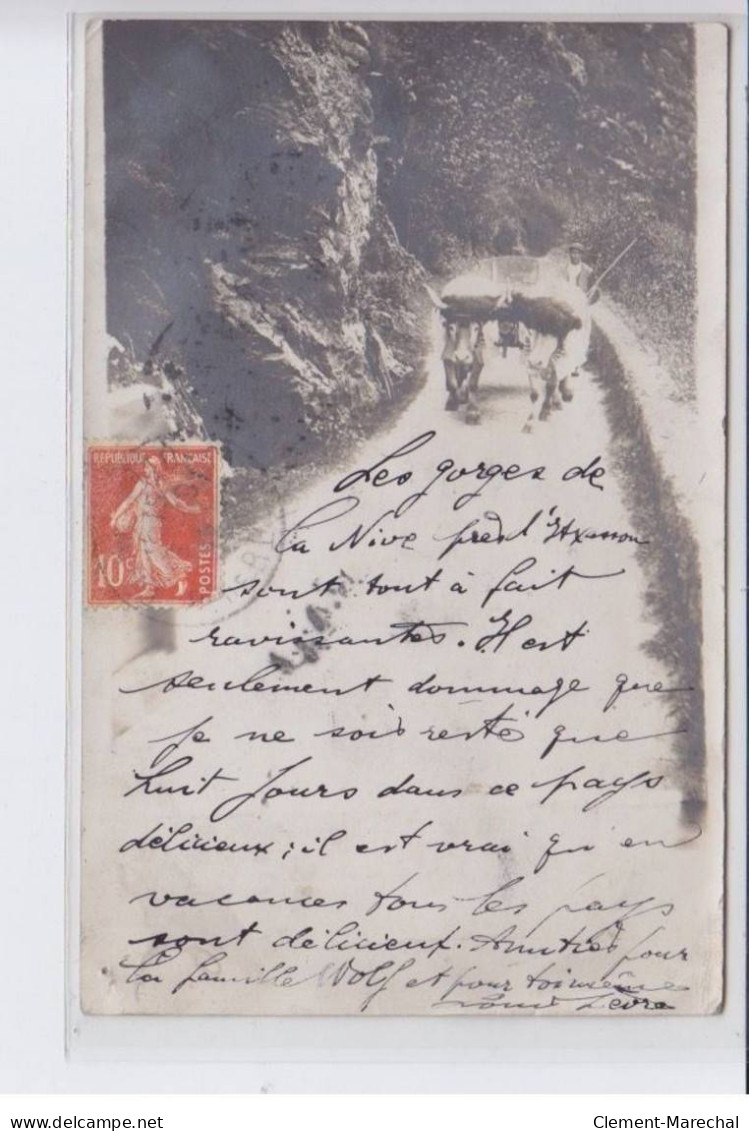 Les gorges de
la Nive près d'Itxassou
sont tout à fait
ravissantes. Il est
seulement dommage que
je ne sois resté que
huit jours dans ce pays
délicieux ; il est vrai qu'en
vacances tous les pays
sont délicieux. Amitiés pour
la famille Wolf et pour toi même
REPUBLIQUE FRANÇAISE
10c
POSTES
Clement-Marechal